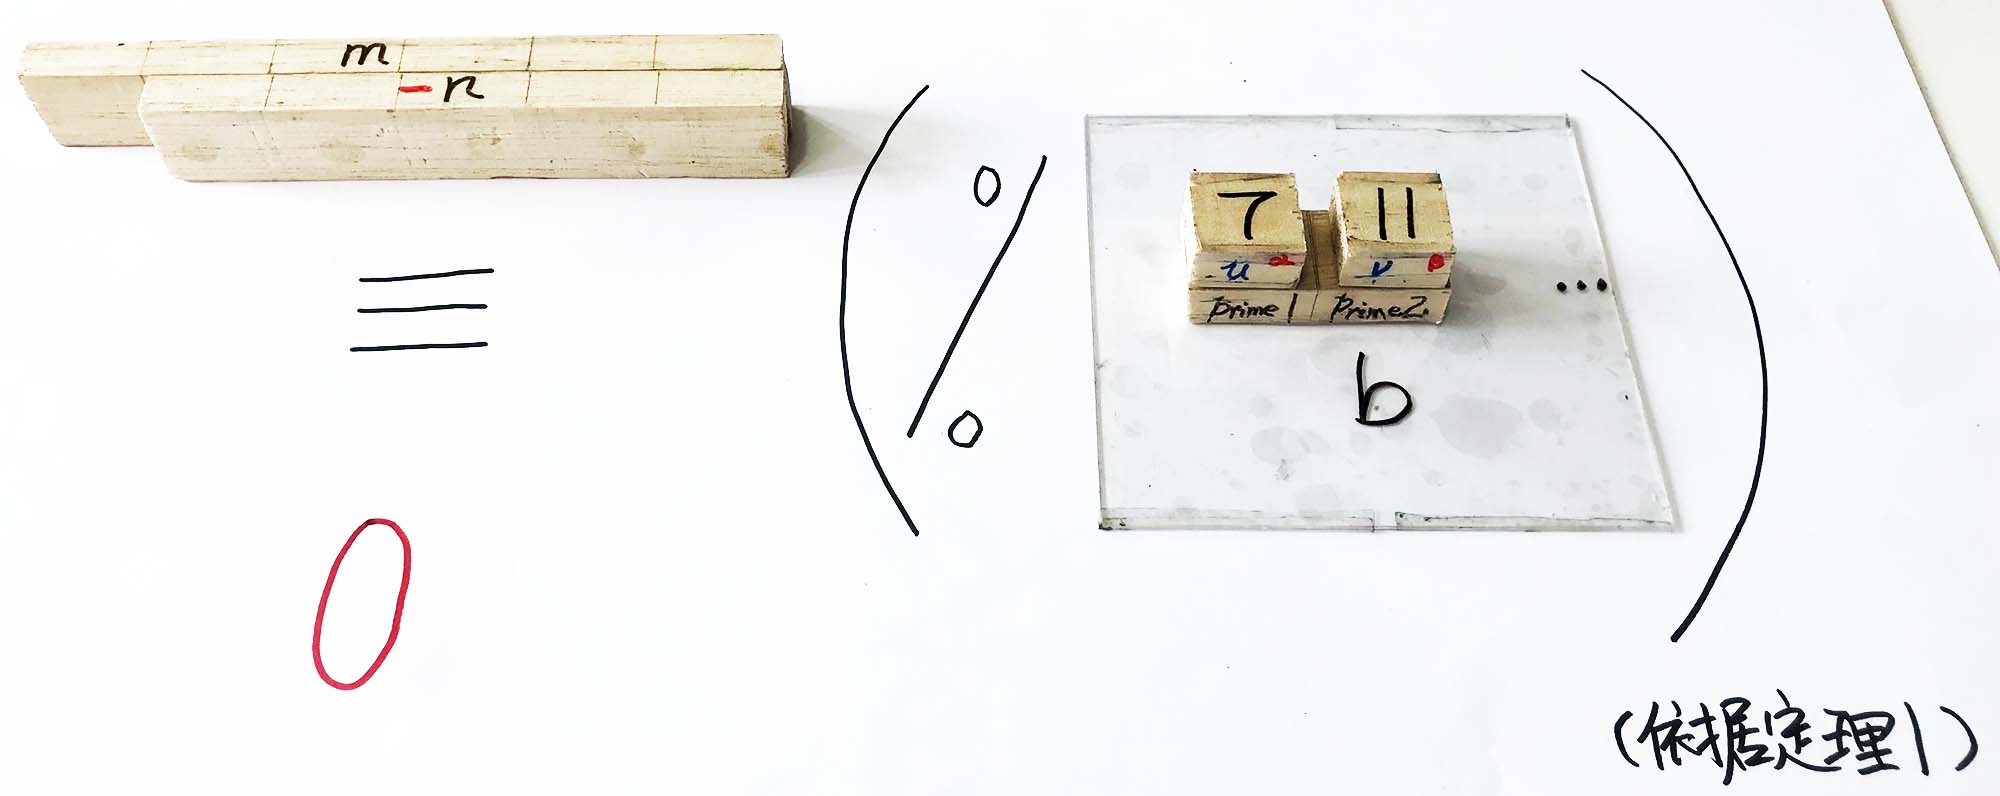 m
-n
≡
0
( % 7 11 ... )
u α ν β
prime1 prime2
b
(依据定理1)